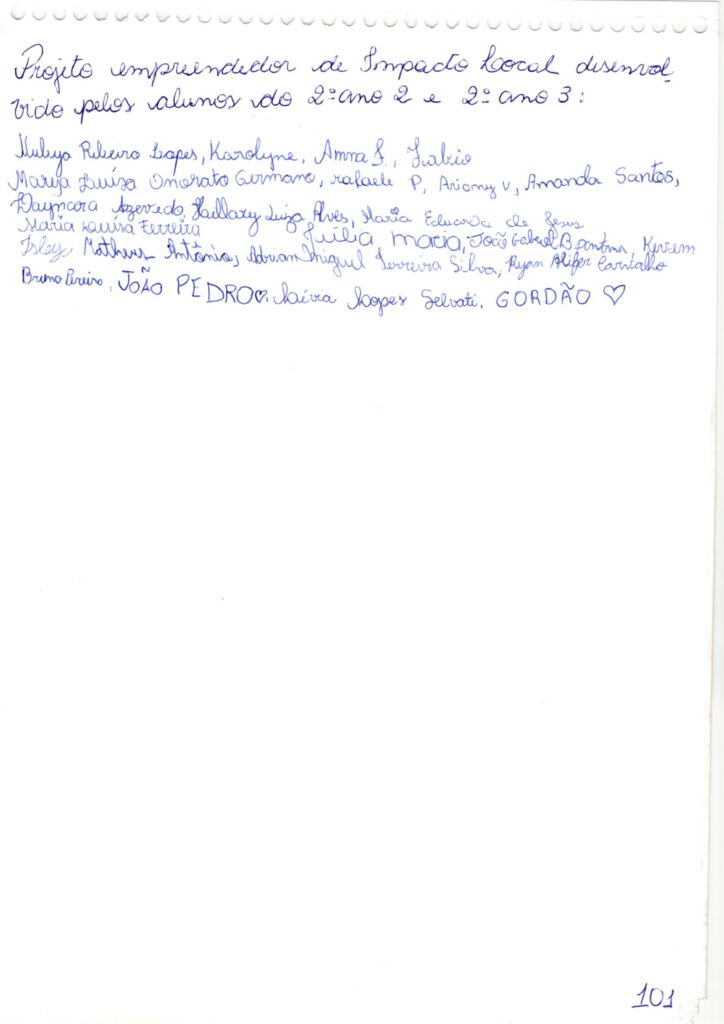 Projeto empreendedor de Impacto Local desenvol
vido pelos alunos do 2º ano 2 e 2º ano 3:
Ribeiro Lopes, Karolyne, Anna J.,
Luiza Onorato Germano, rafaele P, Ariany v, Amanda Santos,
Daynara Azevedo, Hillary Luiza Alves, Maria Eduarda de Jesus
Maria Luiza Ferreira Júlia maria, João Gabriel B.
Matheus Antônio, Adrian miguel Ferreira Silva, Ryan Carvalho
Bruno Pereira, JOÃO PEDRO♡, Lívia Lopes Selvati, GORDÃO ♡
101